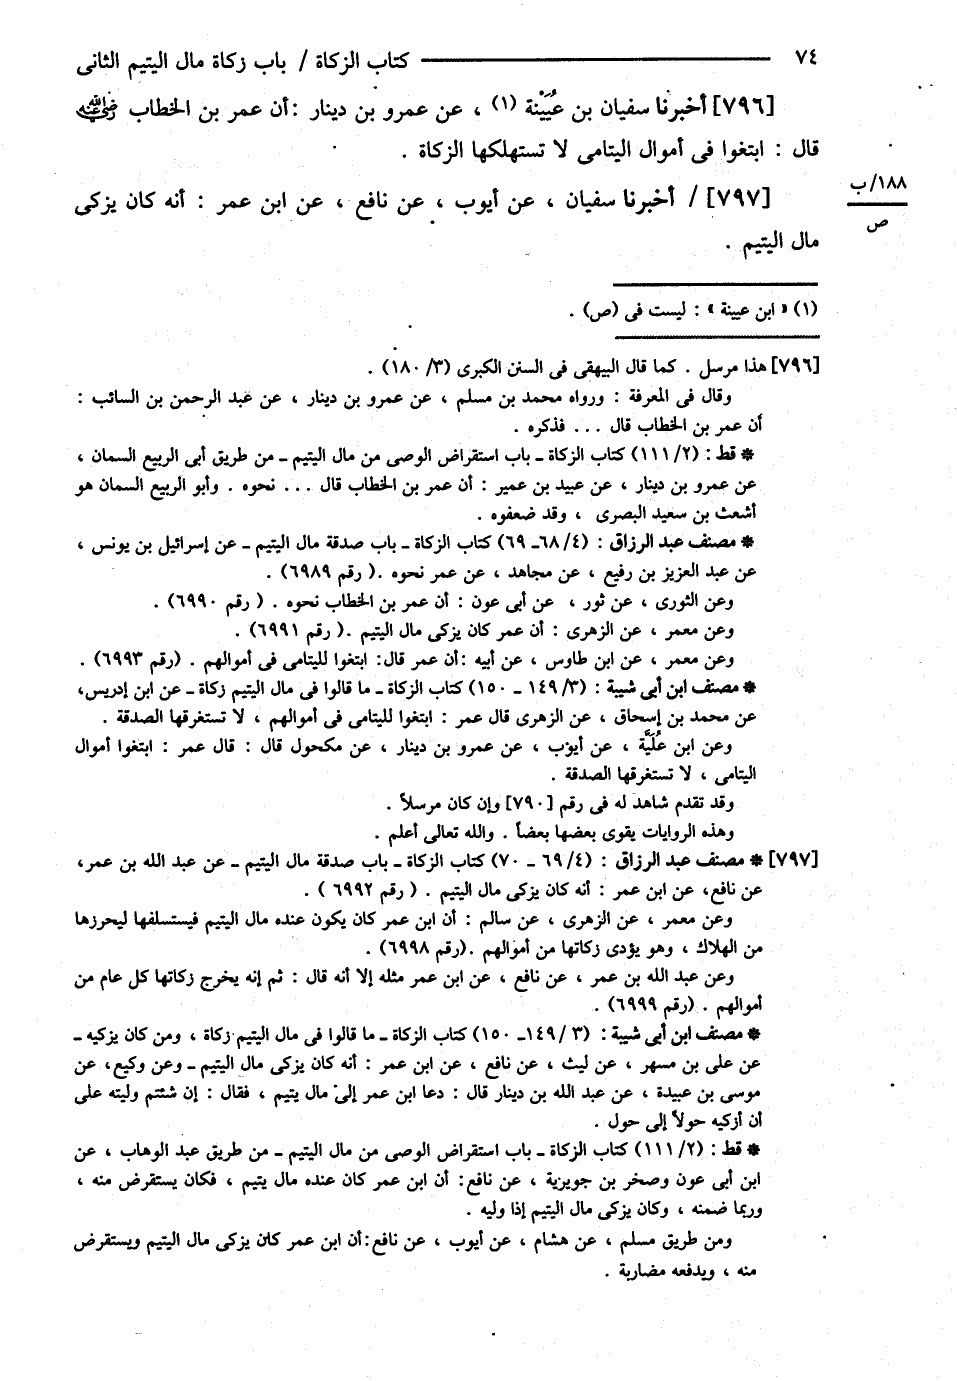 ٧٤ ــــــــــ كتاب الزكاة / باب زكاة مال اليتيم الثانى
[٧٩٦] أخبرنا سفيان بن عُيَيْنة (١) ، عن عمرو بن دينار : أن عمر بن الخطاب رضي الله عنه
قال : ابتغوا فى أموال اليتامى لا تستهلكها الزكاة .
١٨٨/ب
ص
[٧٩٧] / أخبرنا سفيان ، عن أيوب ، عن نافع ، عن ابن عمر : أنه كان يزكى
مال اليتيم .
(١) « ابن عيينة » : ليست فى (ص) .
[٧٩٦] هذا مرسل . كما قال البيهقى فى السنن الكبرى (٣/ ١٨٠) .
وقال فى المعرفة : ورواه محمد بن مسلم ، عن عمرو بن دينار ، عن عبد الرحمن بن السائب :
أن عمر بن الخطاب قال ... فذكره .
* قط : (٢/ ١١١) كتاب الزكاة ـ باب استقراض الوصى من مال اليتيم ـ من طريق أبى الربيع السمان ،
عن عمرو بن دينار ، عن عبيد بن عمير : أن عمر بن الخطاب قال ... نحوه . وأبو الربيع السمان هو
أشعث بن سعيد البصرى ، وقد ضعفوه .
* مصنف عبد الرزاق : (٤/ ٦٨ـ ٦٩) كتاب الزكاة ـ باب صدقة مال اليتيم ـ عن إسرائيل بن يونس ،
عن عبد العزيز بن رفيع ، عن مجاهد ، عن عمر نحوه .( رقم ٦٩٨٩) .
وعن الثورى ، عن ثور ، عن أبى عون : أن عمر بن الخطاب نحوه . ( رقم ٦٩٩٠) .
وعن معمر ، عن الزهرى : أن عمر كان يزكى مال اليتيم .( رقم ٦٩٩١) .
وعن معمر ، عن ابن طاوس ، عن أبيه :أن عمر قال: ابتغوا لليتامى فى أموالهم . (رقم ٦٩٩٣) .
* مصنف ابن أبى شيبة : (٣/ ١٤٩ ـ ١٥٠) كتاب الزكاة ـ ما قالوا فى مال اليتيم زكاة ـ عن ابن إدريس،
عن محمد بن إسحاق ، عن الزهرى قال عمر : ابتغوا لليتامى فى أموالهم ، لا تستغرقها الصدقة .
وعن ابن عُلَيَّة ، عن أيوب ، عن عمرو بن دينار ، عن مكحول قال : قال عمر : ابتغوا أموال
اليتامى ، لا تستغرقها الصدقة .
وقد تقدم شاهد له فى رقم [٧٩٠] وإن كان مرسلاً .
وهذه الروايات يقوى بعضها بعضاً . والله تعالى أعلم .
[٧٩٧] * مصنف عبد الرزاق : (٤/ ٦٩ ـ ٧٠) كتاب الزكاة ـ باب صدقة مال اليتيم ـ عن عبد الله بن عمر،
عن نافع، عن ابن عمر : أنه كان يزكى مال اليتيم . ( رقم ٦٩٩٢ ) .
وعن معمر ، عن الزهرى ، عن سالم : أن ابن عمر كان يكون عنده مال اليتيم فيستسلفها ليحرزها
من الهلاك ، وهو يؤدى زكاتها من أموالهم .(رقم ٦٩٩٨) .
وعن عبد الله بن عمر ، عن نافع ، عن ابن عمر مثله إلا أنه قال : ثم إنه يخرج زكاتها كل عام من
أموالهم . (رقم ٦٩٩٩) .
* مصنف ابن أبى شيبة : (٣ /١٤٩ـ ١٥٠) كتاب الزكاة ـ ما قالوا فى مال اليتيم زكاة ، ومن كان يزكيه ـ
عن على بن مسهر ، عن ليث ، عن نافع ، عن ابن عمر : أنه كان يزكى مال اليتيم ـ وعن وكيع، عن
موسى بن عبيدة ، عن عبد الله بن دينار قال : دعا ابن عمر إلى مال يتيم ، فقال : إن شئتم وليته على
أن أزكيه حولاً إلى حول .
* قط : (٢/ ١١١) كتاب الزكاة ـ باب استقراض الوصى من مال اليتيم ـ من طريق عبد الوهاب ، عن
ابن أبى عون وصخر بن جويرية ، عن نافع: أن ابن عمر كان عنده مال يتيم ، فكان يستقرض منه ،
وربما ضمنه ، وكان يزكى مال اليتيم إذا وليه .
ومن طريق مسلم ، عن هشام ، عن أيوب ، عن نافع:أن ابن عمر كان يزكى مال اليتيم ويستقرض
منه ، ويدفعه مضاربة .